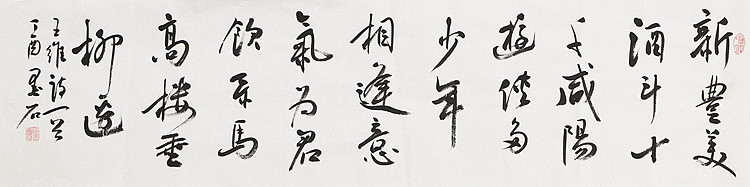 新豐美
酒斗十
千咸陽
遊俠多
少年
相逢意
氣為君
飲系馬
高樓垂
柳邊
王維詩一首
丁酉墨石